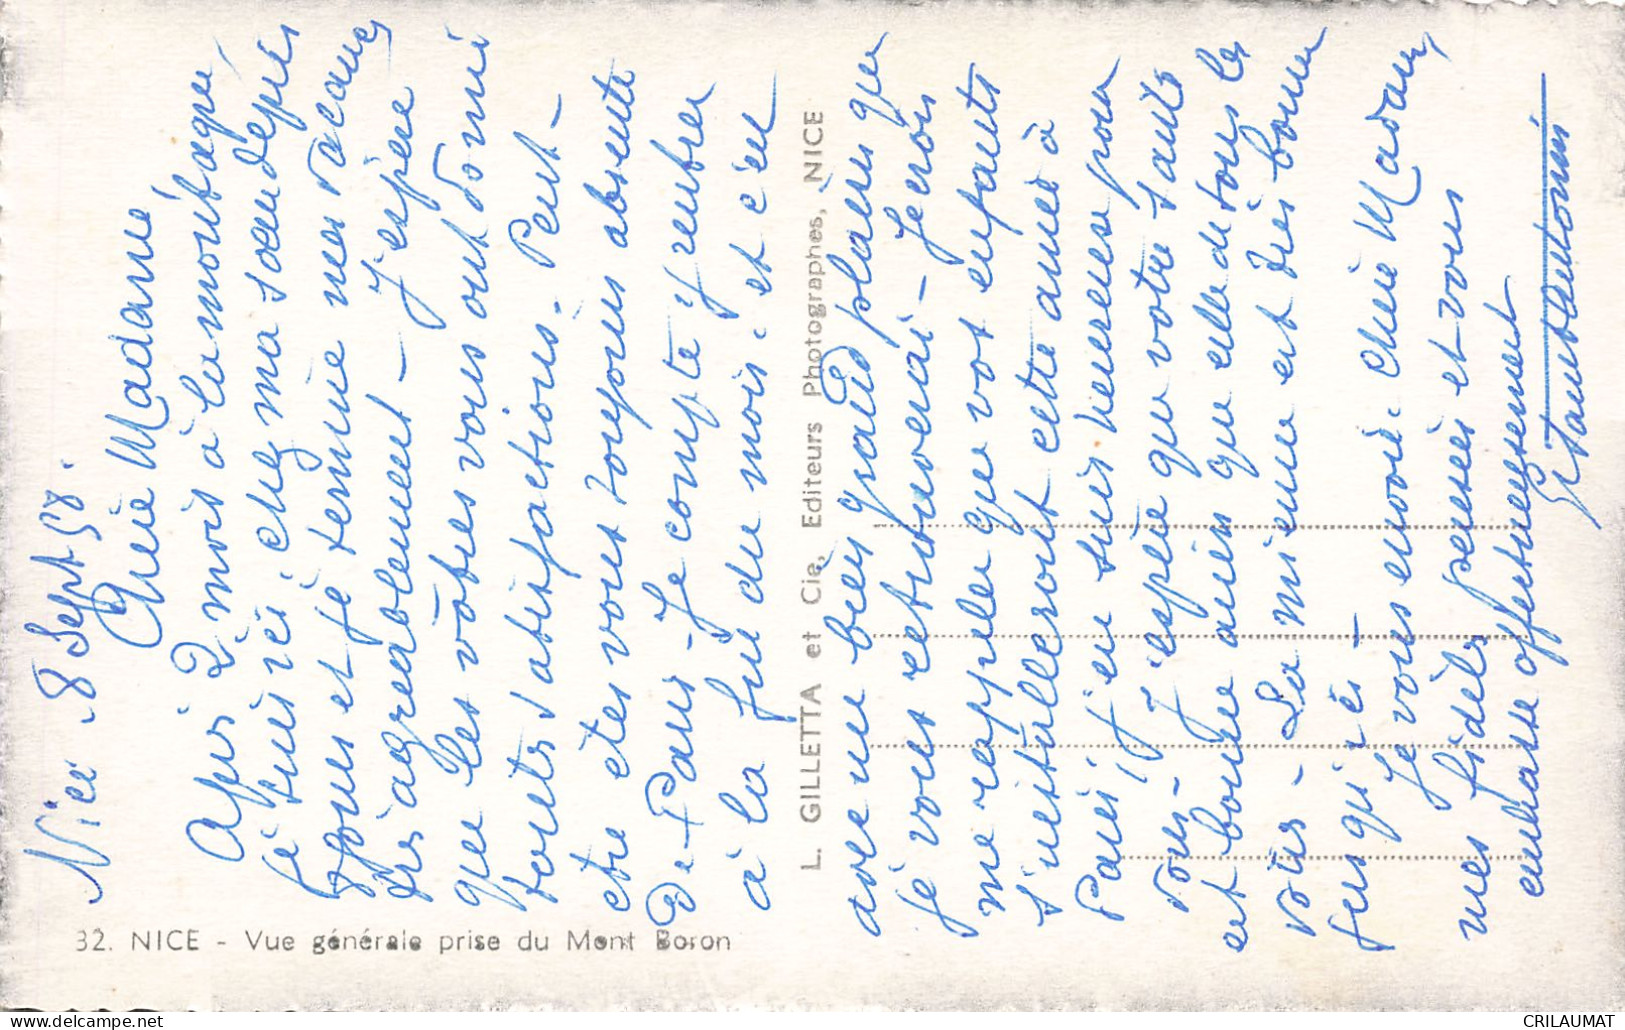 Nice 8 Sept 58.
Chère Madame,
Après 2 mois à la montagne,
je suis ici chez ma sœur depuis
jours et je termine mes vacances
très agréablement - J'espère
que les vôtres vous ont donné
toutes satisfactions. Peut-
être êtes vous toujours absente
de Paris - Je compte y rentrer
à la fin du mois. et c'est
L. GILLETTA et Cie, Editeurs Photographes, NICE
avec un bien grand plaisir que
je vous retrouverai - Je crois
me rappeler que vos enfants
s'installeront cette année à
Paris, j'en suis heureuse pour
vous - J'espère que votre santé
est bonne ainsi que celle de tous les
vôtres - La mienne est très bonne
jusqu'ici -
Je vous envoie. chère Madame,
mes fidèles pensées et vous
embrasse affectueusement
32. NICE - Vue générale prise du Mont Boron
CRILAUMAT